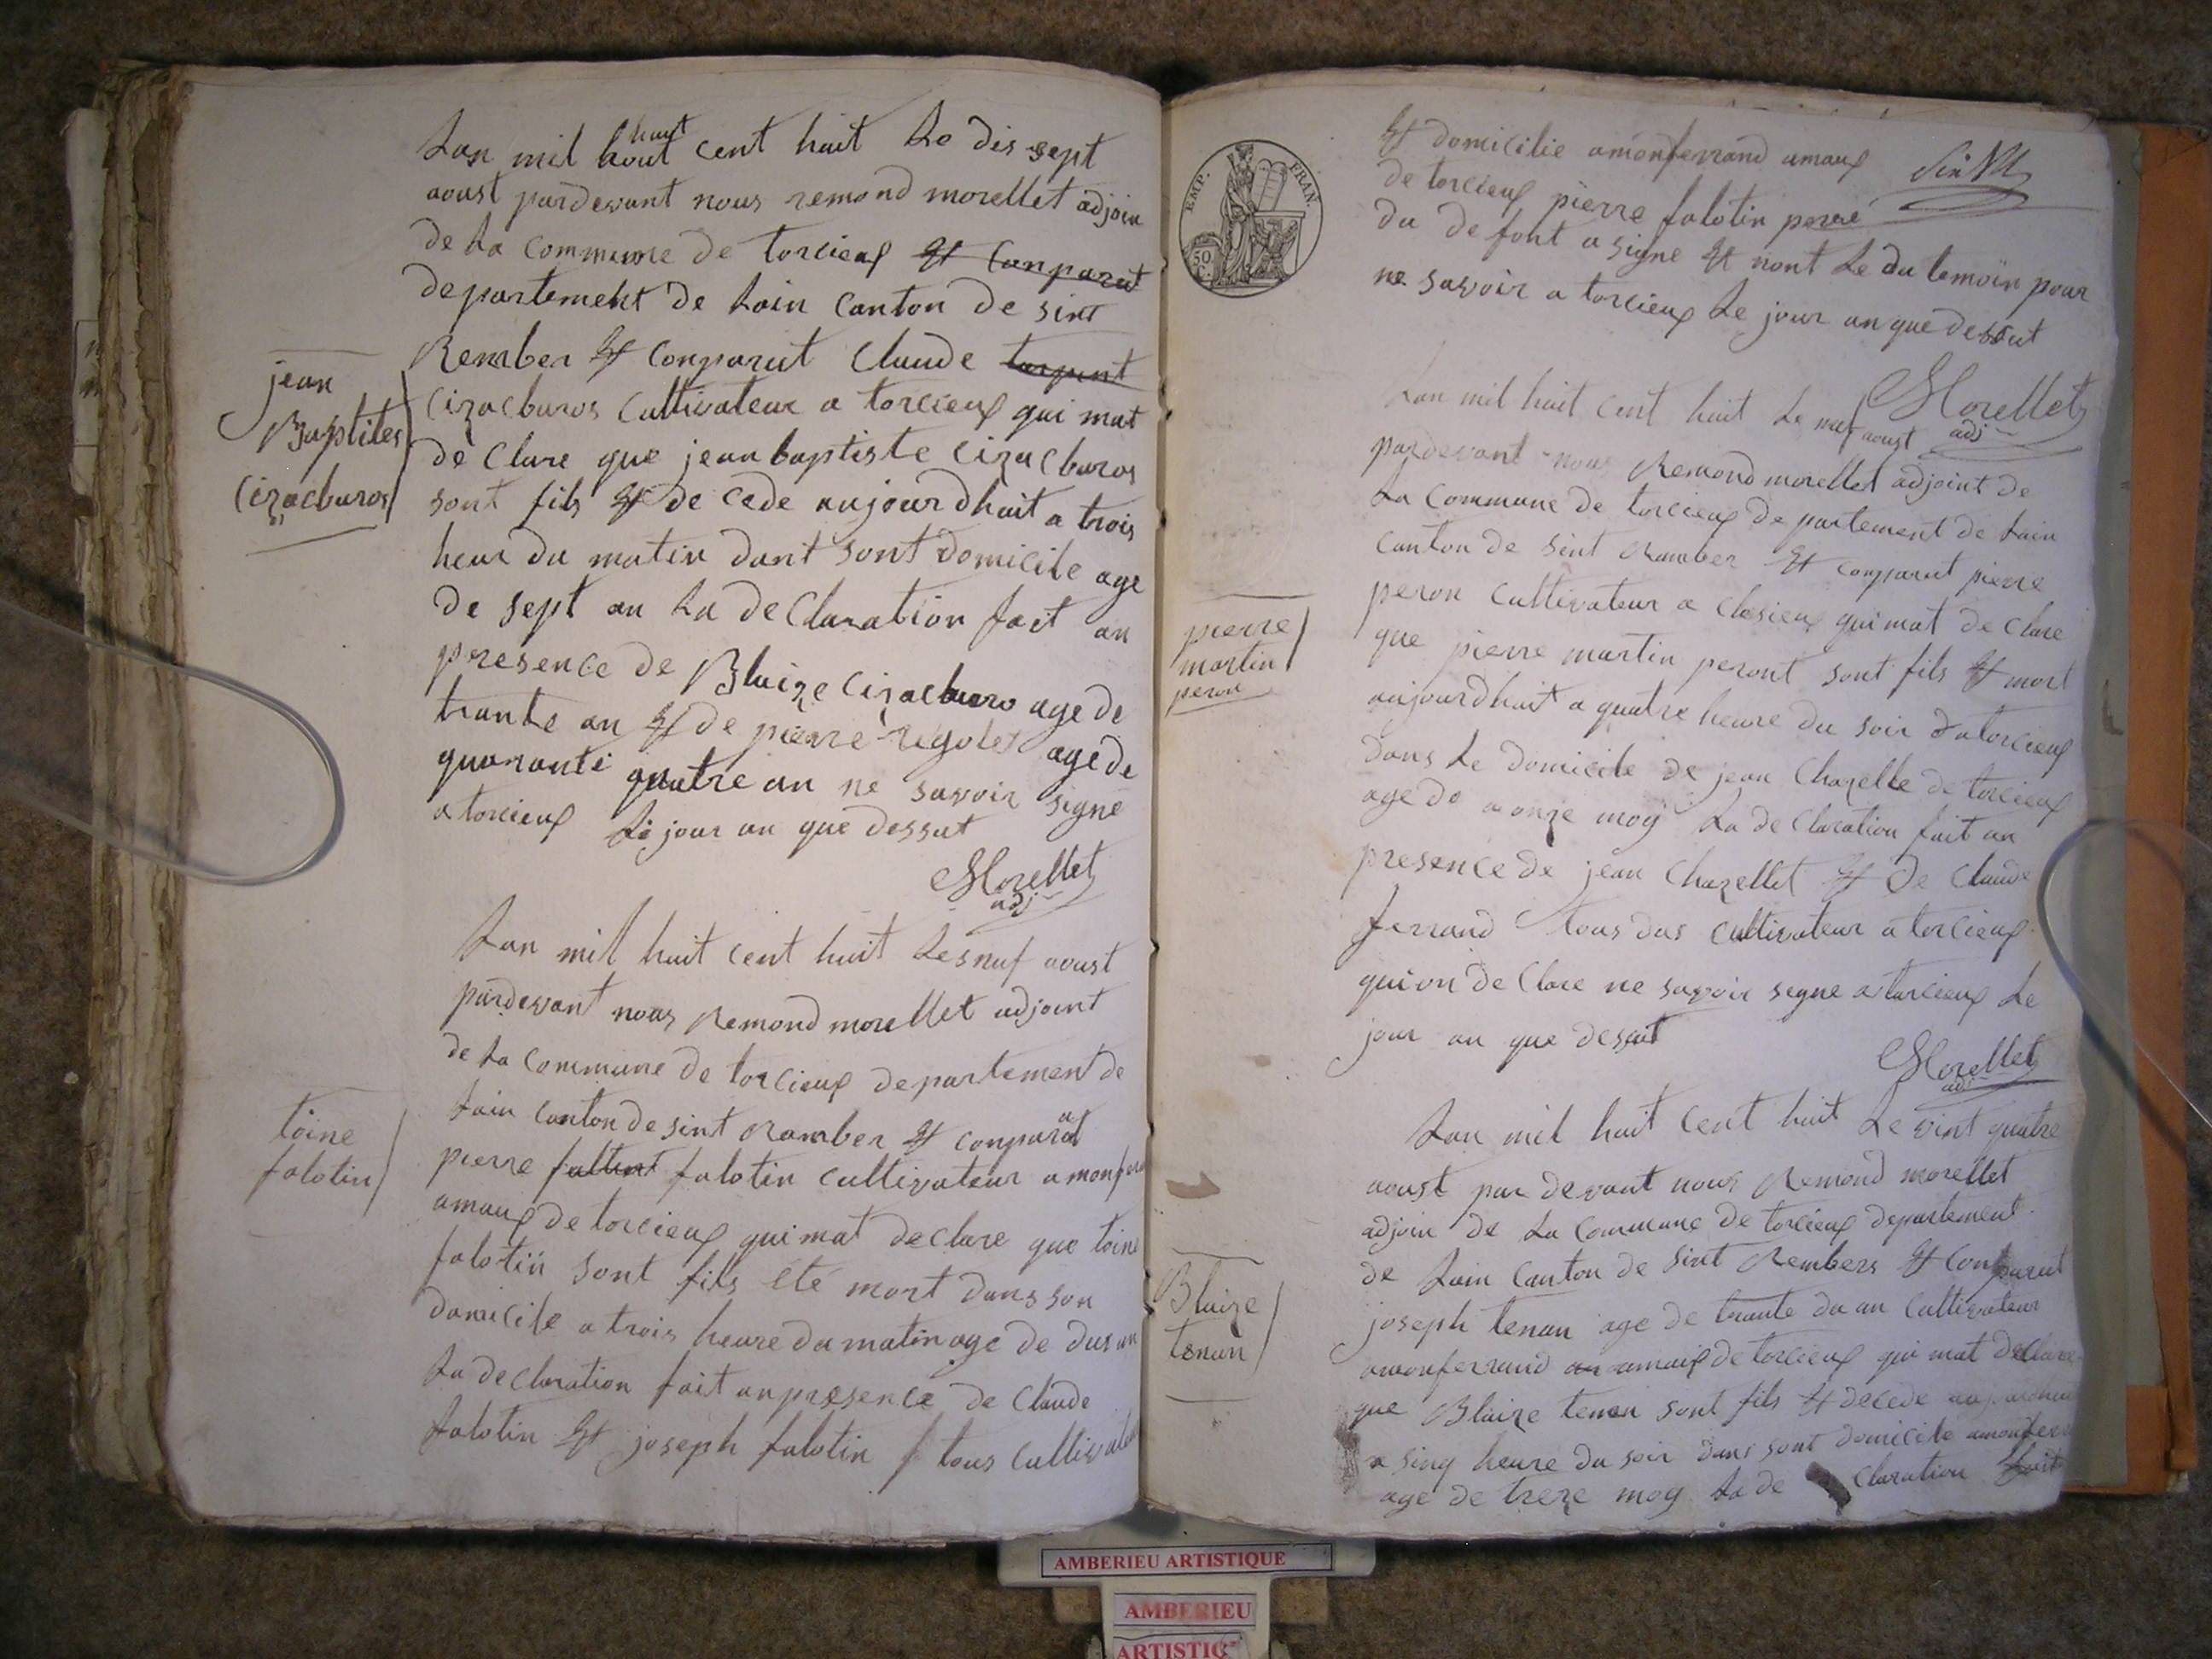 Lan mil huit cent huit Le dis sept
aoust pardevant nous remond morellet adjoin
de La Commune de torcieux Et Conparut
departement de Lain Canton de sint
Rember Et Conparut Claude
jean
Baptites
Cizacburos
Cizacburos Cultivateur a torcieux qui mat
de Clare que jean baptiste Cizacburos
sont fils Et de cede aujourdhuit a trois
heur du matin dant sont domicile age
de sept an La de Claration fait an
presence de Blaize Cizacburo age de
trante an Et de pierre regolet age de
quarante quatre an ne savoir signé
a torcieux Le jour an que dessut
Morellet
adj
Lan mil huit cent huit Lesnuf aoust
pardevant nous Remond morellet adjoint
de La Commune de torcieux departement de
Lain Canton de sint Ramber Et conparut
toine
falotin
pierre falotin cultivateur a monfera
amaux de torcieux qui mat declare que toine
falotin sont fils Eté mort dans son
domicile a trois heure du matin age de dus an
La declaration fait anpresence de Claude
falotin Et joseph falotin tous cultivateur
EMP. FRAN.
50
C.
Et domicilie amonferrand amaux
de torcieux pierre falotin perre
du defont a signe Et nont Le du temoin pour
ne savoir a torcieux Le jour an que dessut
Morellet
adj
Lan mil huit cent huit Le nuf aoust
pardevant nous Remond morellet adjoint de
La Commune de torcieux departement de Lain
Canton de sint Ramber Et conparut pierre
pierre
martin
peron
peron Cultivateur a Clesieux qui mat de Clare
que pierre martin peront sont fils Et mort
aujourdhuit a quatre heure du soir a torcieux
dans Le domicile de jean Chazelle de torcieux
age de a onze moy La de Claration fait an
presence de jean Chazellet Et de Claude
ferrand tous dus cultivateur a torcieux
qui on de Clare ne savoir segne a torcieux Le
jour an que dessut
Morellet
adj
Lan mil huit cent huit Le vint quatre
aoust par devant nous Remond morellet
adjoin de La Commune de torcieux departement
de Lain Canton de sint Rembers Et Conparut
Blaize
tenan
joseph tenan age de trante du an Cultivateur
amonferrand amaux de torcieux qui mat declare
que Blaize tenan sont fils Et decede aujourdhui
a sinq heure du soir dans sont domicile amonferr
age de treze moy La de Claration fait
AMBERIEU ARTISTIQUE
AMBERIEU
ARTISTIQ